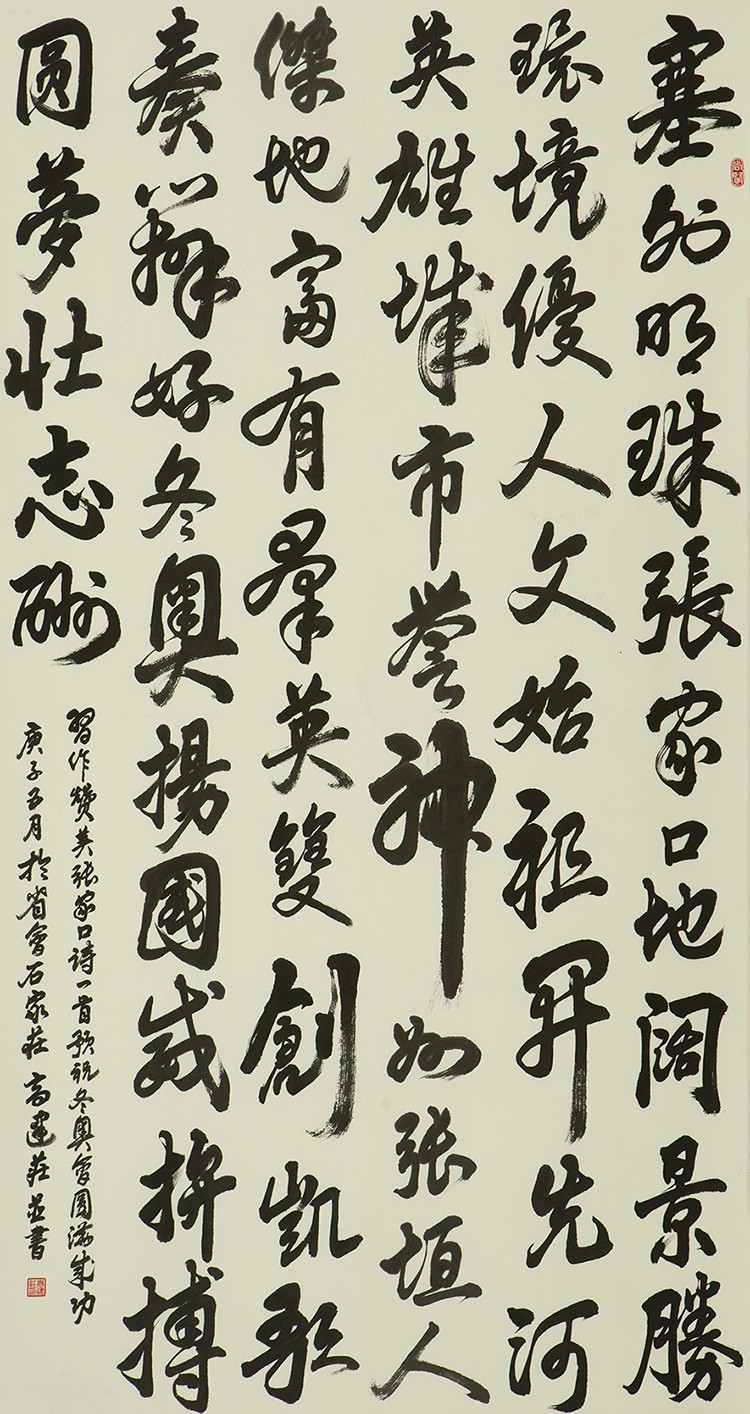 塞外明珠張家口地阔景勝
環境優人文始祖開先河
英雄城市誉神州张垣人
傑地富有羣英雙創凱歌
奏辦好冬奥揚國威拚搏
圆夢壯志酬
習作赞美张家口詩一首预祝冬奥會圆满成功
庚子五月於省會石家莊高建莊並書